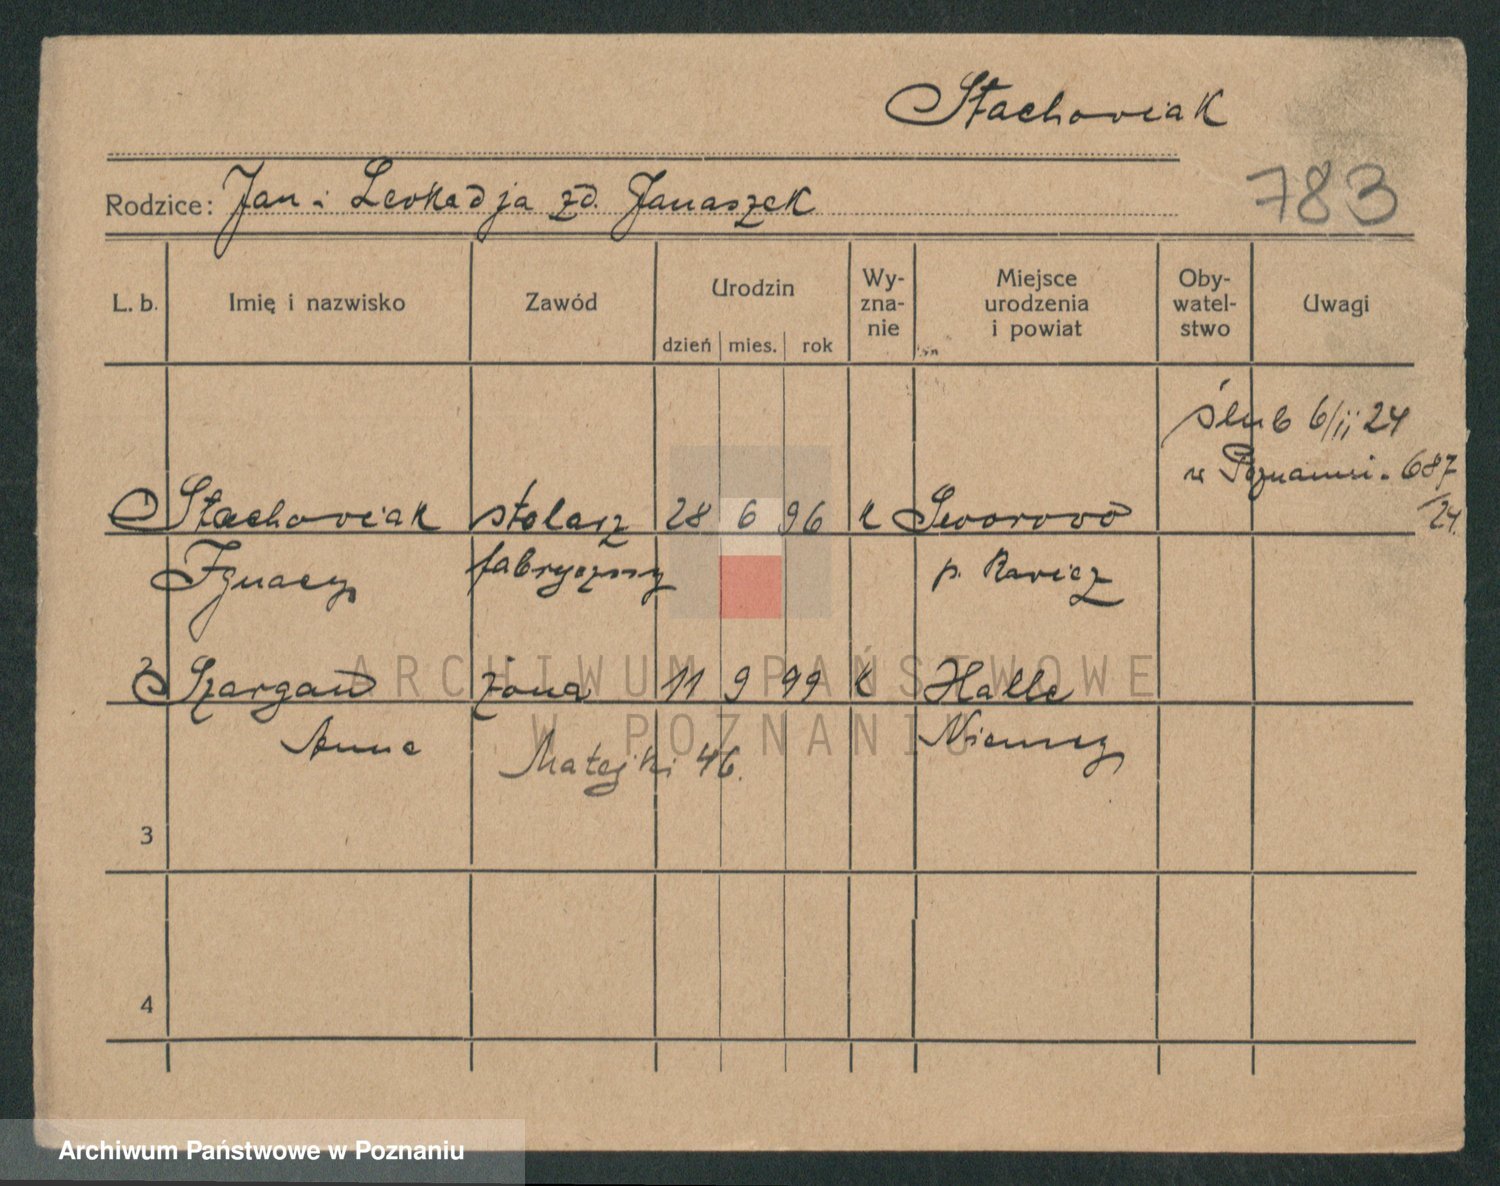 Stachowiak
Rodzice: Jan i Leokadja zd. Janaszek
783
L. b.
Imię i nazwisko
Zawód
Urodzin
dzień mies. rok
Wy-
zna-
nie
Miejsce
urodzenia
i powiat
Oby-
watel-
stwo
Uwagi
ślub 6/ii 24
w Poznaniu - 687
/24.
1 Stachowiak stolarz 28 6 96 k
Ignacy fabryczny p. Rawicz
2 żona 11 9 99 k Halle
Anna Niemcy
Matejki 46.
3
4
ARCHIWUM PAŃSTWOWE
W POZNANIU
Archiwum Państwowe w Poznaniu